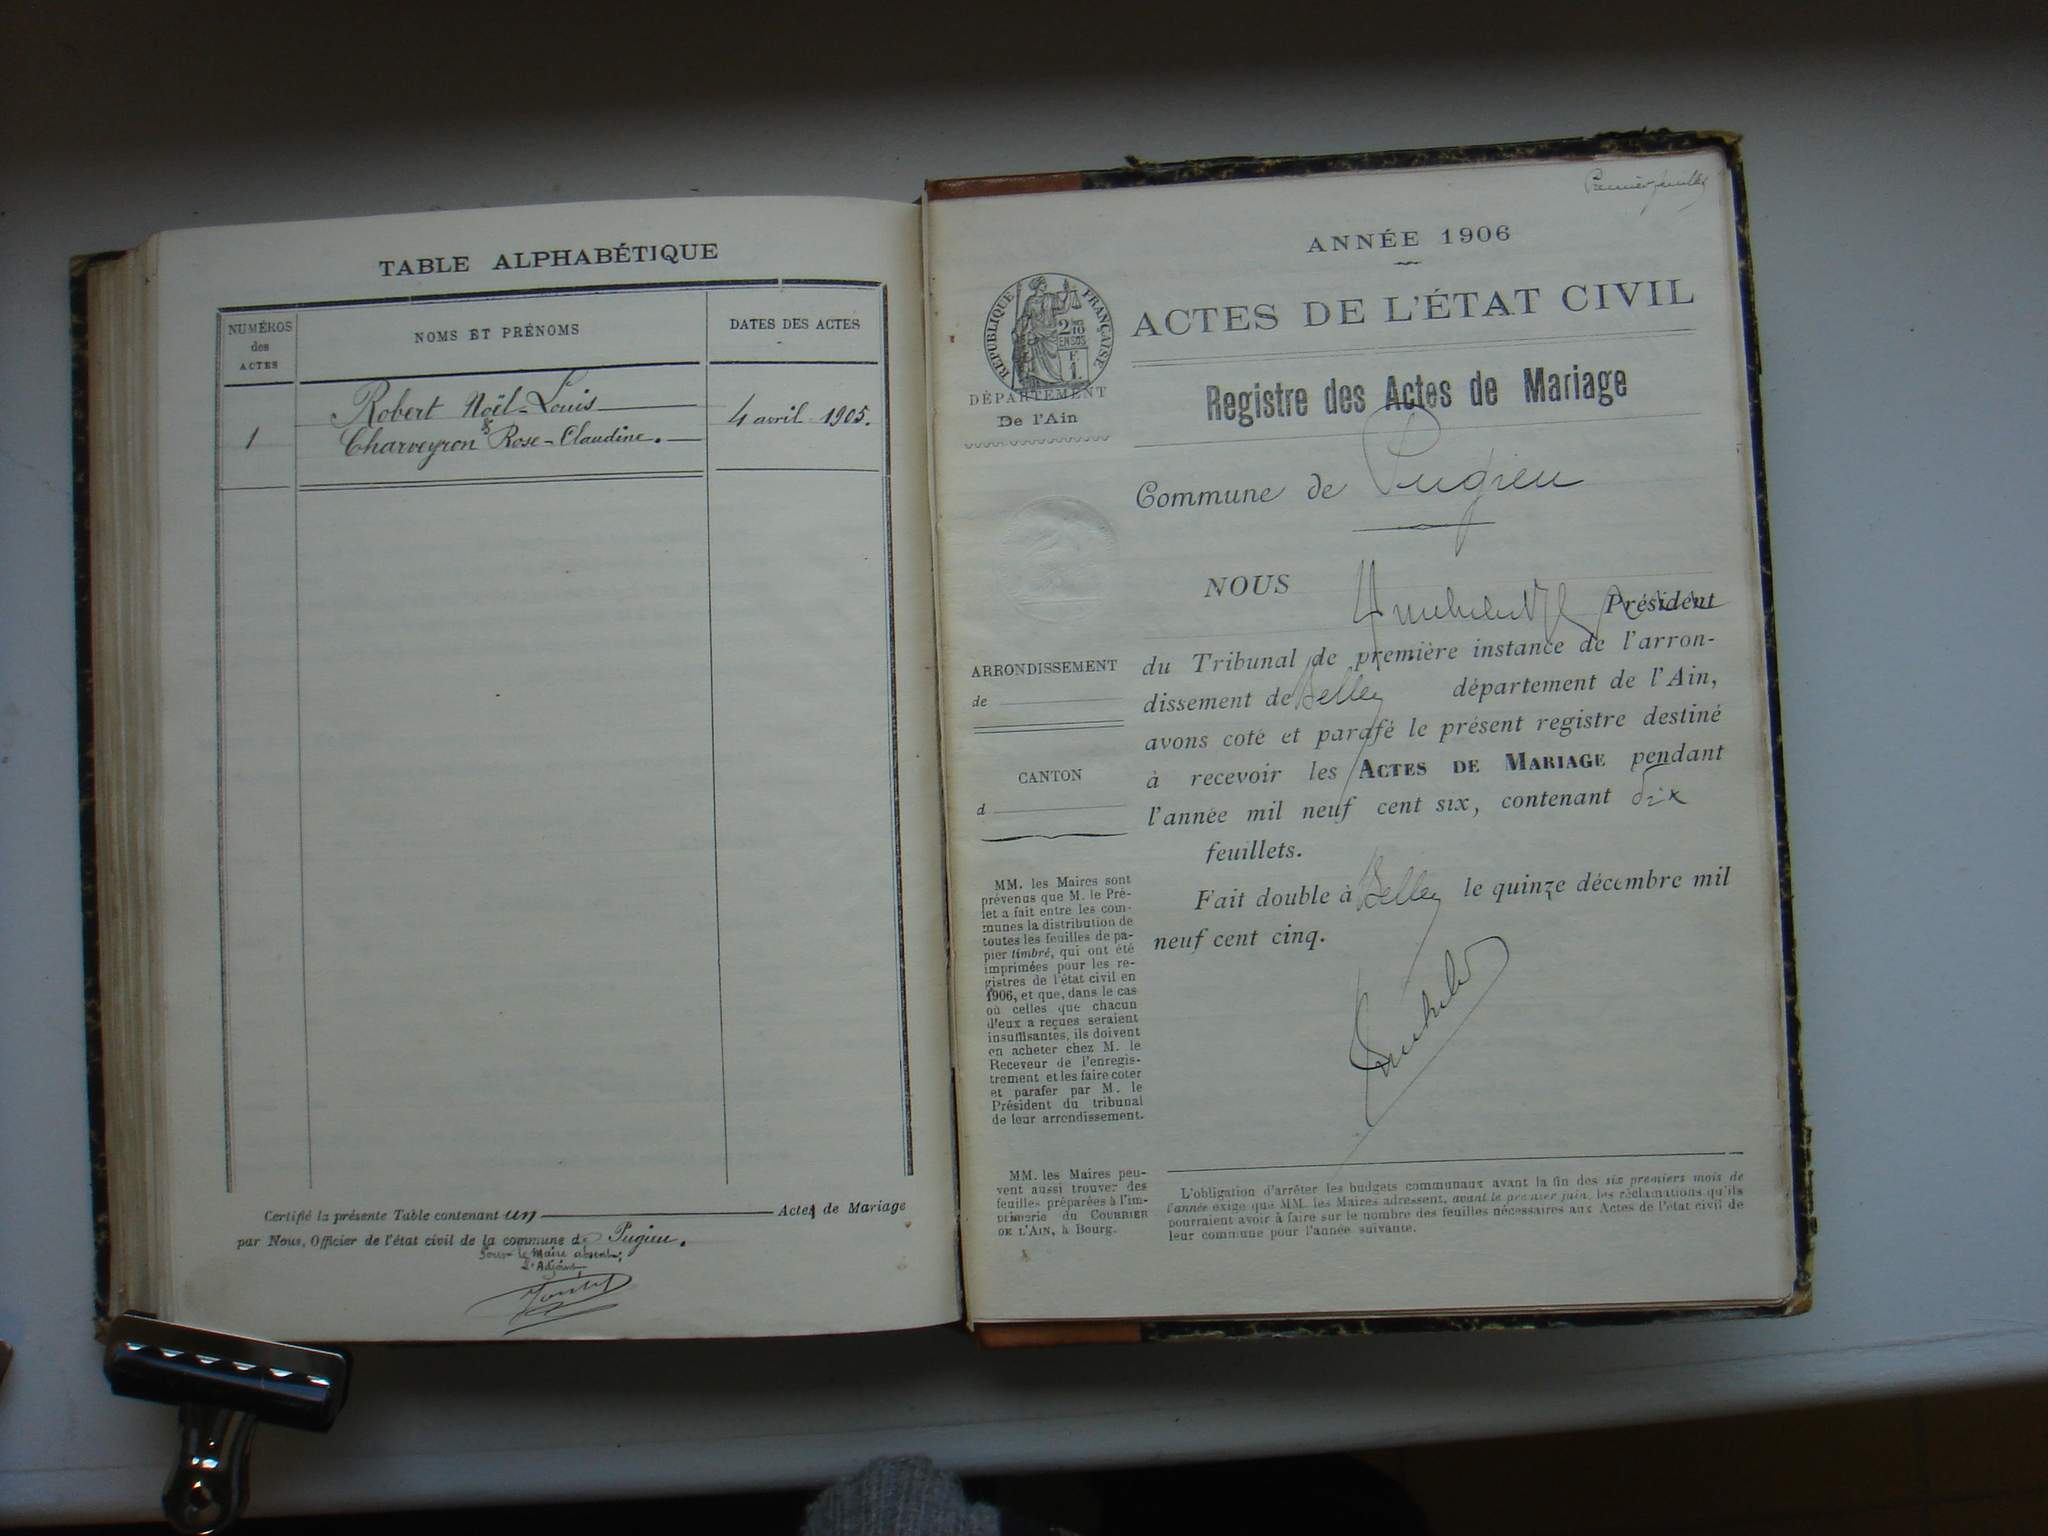 TABLE ALPHABÉTIQUE
NUMÉROS
des
ACTES
NOMS ET PRÉNOMS
DATES DES ACTES
1
Robert Noël-Louis
&
Charveyron Rose-Claudine.
4 avril 1905.
Certifié la présente Table contenant un Actes de Mariage
par Nous, Officier de l'état civil de la commune de Pugieu.
Pour le Maire absent;
L'Adjoint,
Premier feuillet
ANNÉE 1906
ACTES DE L'ÉTAT CIVIL
RÉPUBLIQUE FRANÇAISE
2/10
EN SUS
F.
1.
DÉPARTEMENT
De l'Ain
Registre des Actes de Mariage
Commune de Pugieu
NOUS Président
du Tribunal de première instance de l'arron-
dissement de Belley département de l'Ain,
avons coté et parafé le présent registre destiné
à recevoir les ACTES DE MARIAGE pendant
l'année mil neuf cent six, contenant dix
feuillets.
Fait double à Belley le quinze décembre mil
neuf cent cinq.
ARRONDISSEMENT
de
CANTON
d
MM. les Maires sont
prévenus que M. le Pré-
fet a fait entre les com-
munes la distribution de
toutes les feuilles de pa-
pier timbré, qui ont été
imprimées pour les re-
gistres de l'état civil en
1906, et que, dans le cas
où celles que chacun
d'eux a reçues seraient
insuffisantes, ils doivent
en acheter chez M. le
Receveur de l'enregis-
trement et les faire coter
et parafer par M. le
Président du tribunal
de leur arrondissement.
MM. les Maires peu-
vent aussi trouver des
feuilles préparées à l'im-
primerie du COURRIER
DE L'AIN, à Bourg.
L'obligation d'arrêter les budgets communaux avant la fin des six premiers mois de
l'année exige que MM. les Maires adressent, avant le premier juin, les réclamations qu'ils
pourraient avoir à faire sur le nombre des feuilles nécessaires aux Actes de l'état civil de
leur commune pour l'année suivante.